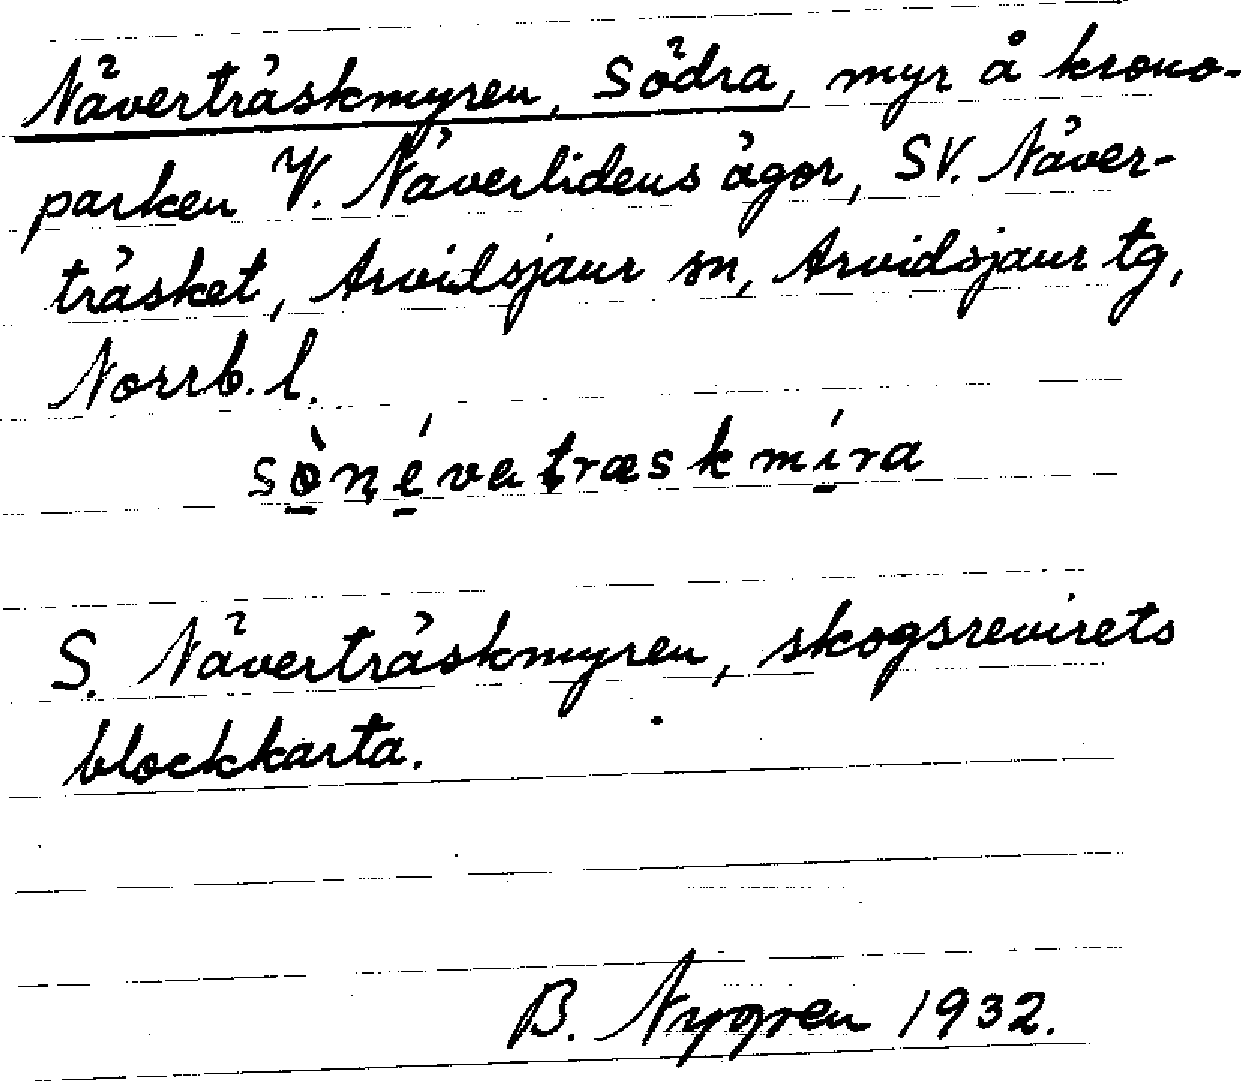 Näverträskmyren, Södra, myr å krono-
parken V. Näverlidens ägor, SV. Näver-
träsket, Arvidsjaur sn, Arvidsjaur tg,
Norrb. l.
sò̱ṇé̱vatræskmí̱ra
S. Näverträskmyren, skogsrevirets
blockkarta.
B. Nygren 1932.